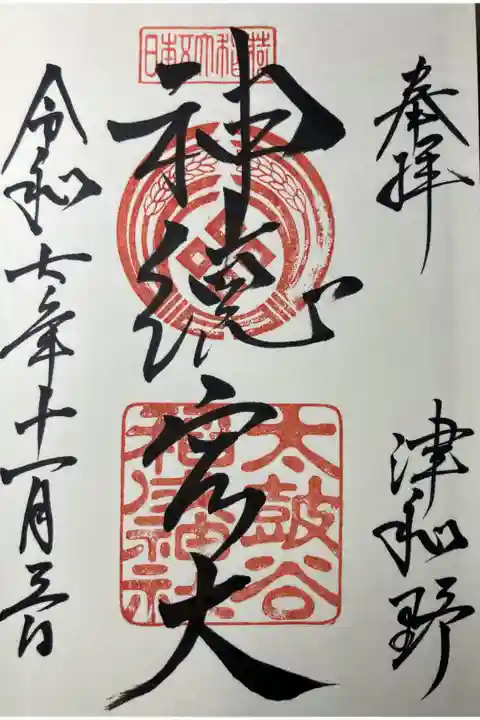 奉拝
津和野
日本五大稲荷
神徳宏大
太鼓谷
稲成神社
令和六年十一月三日